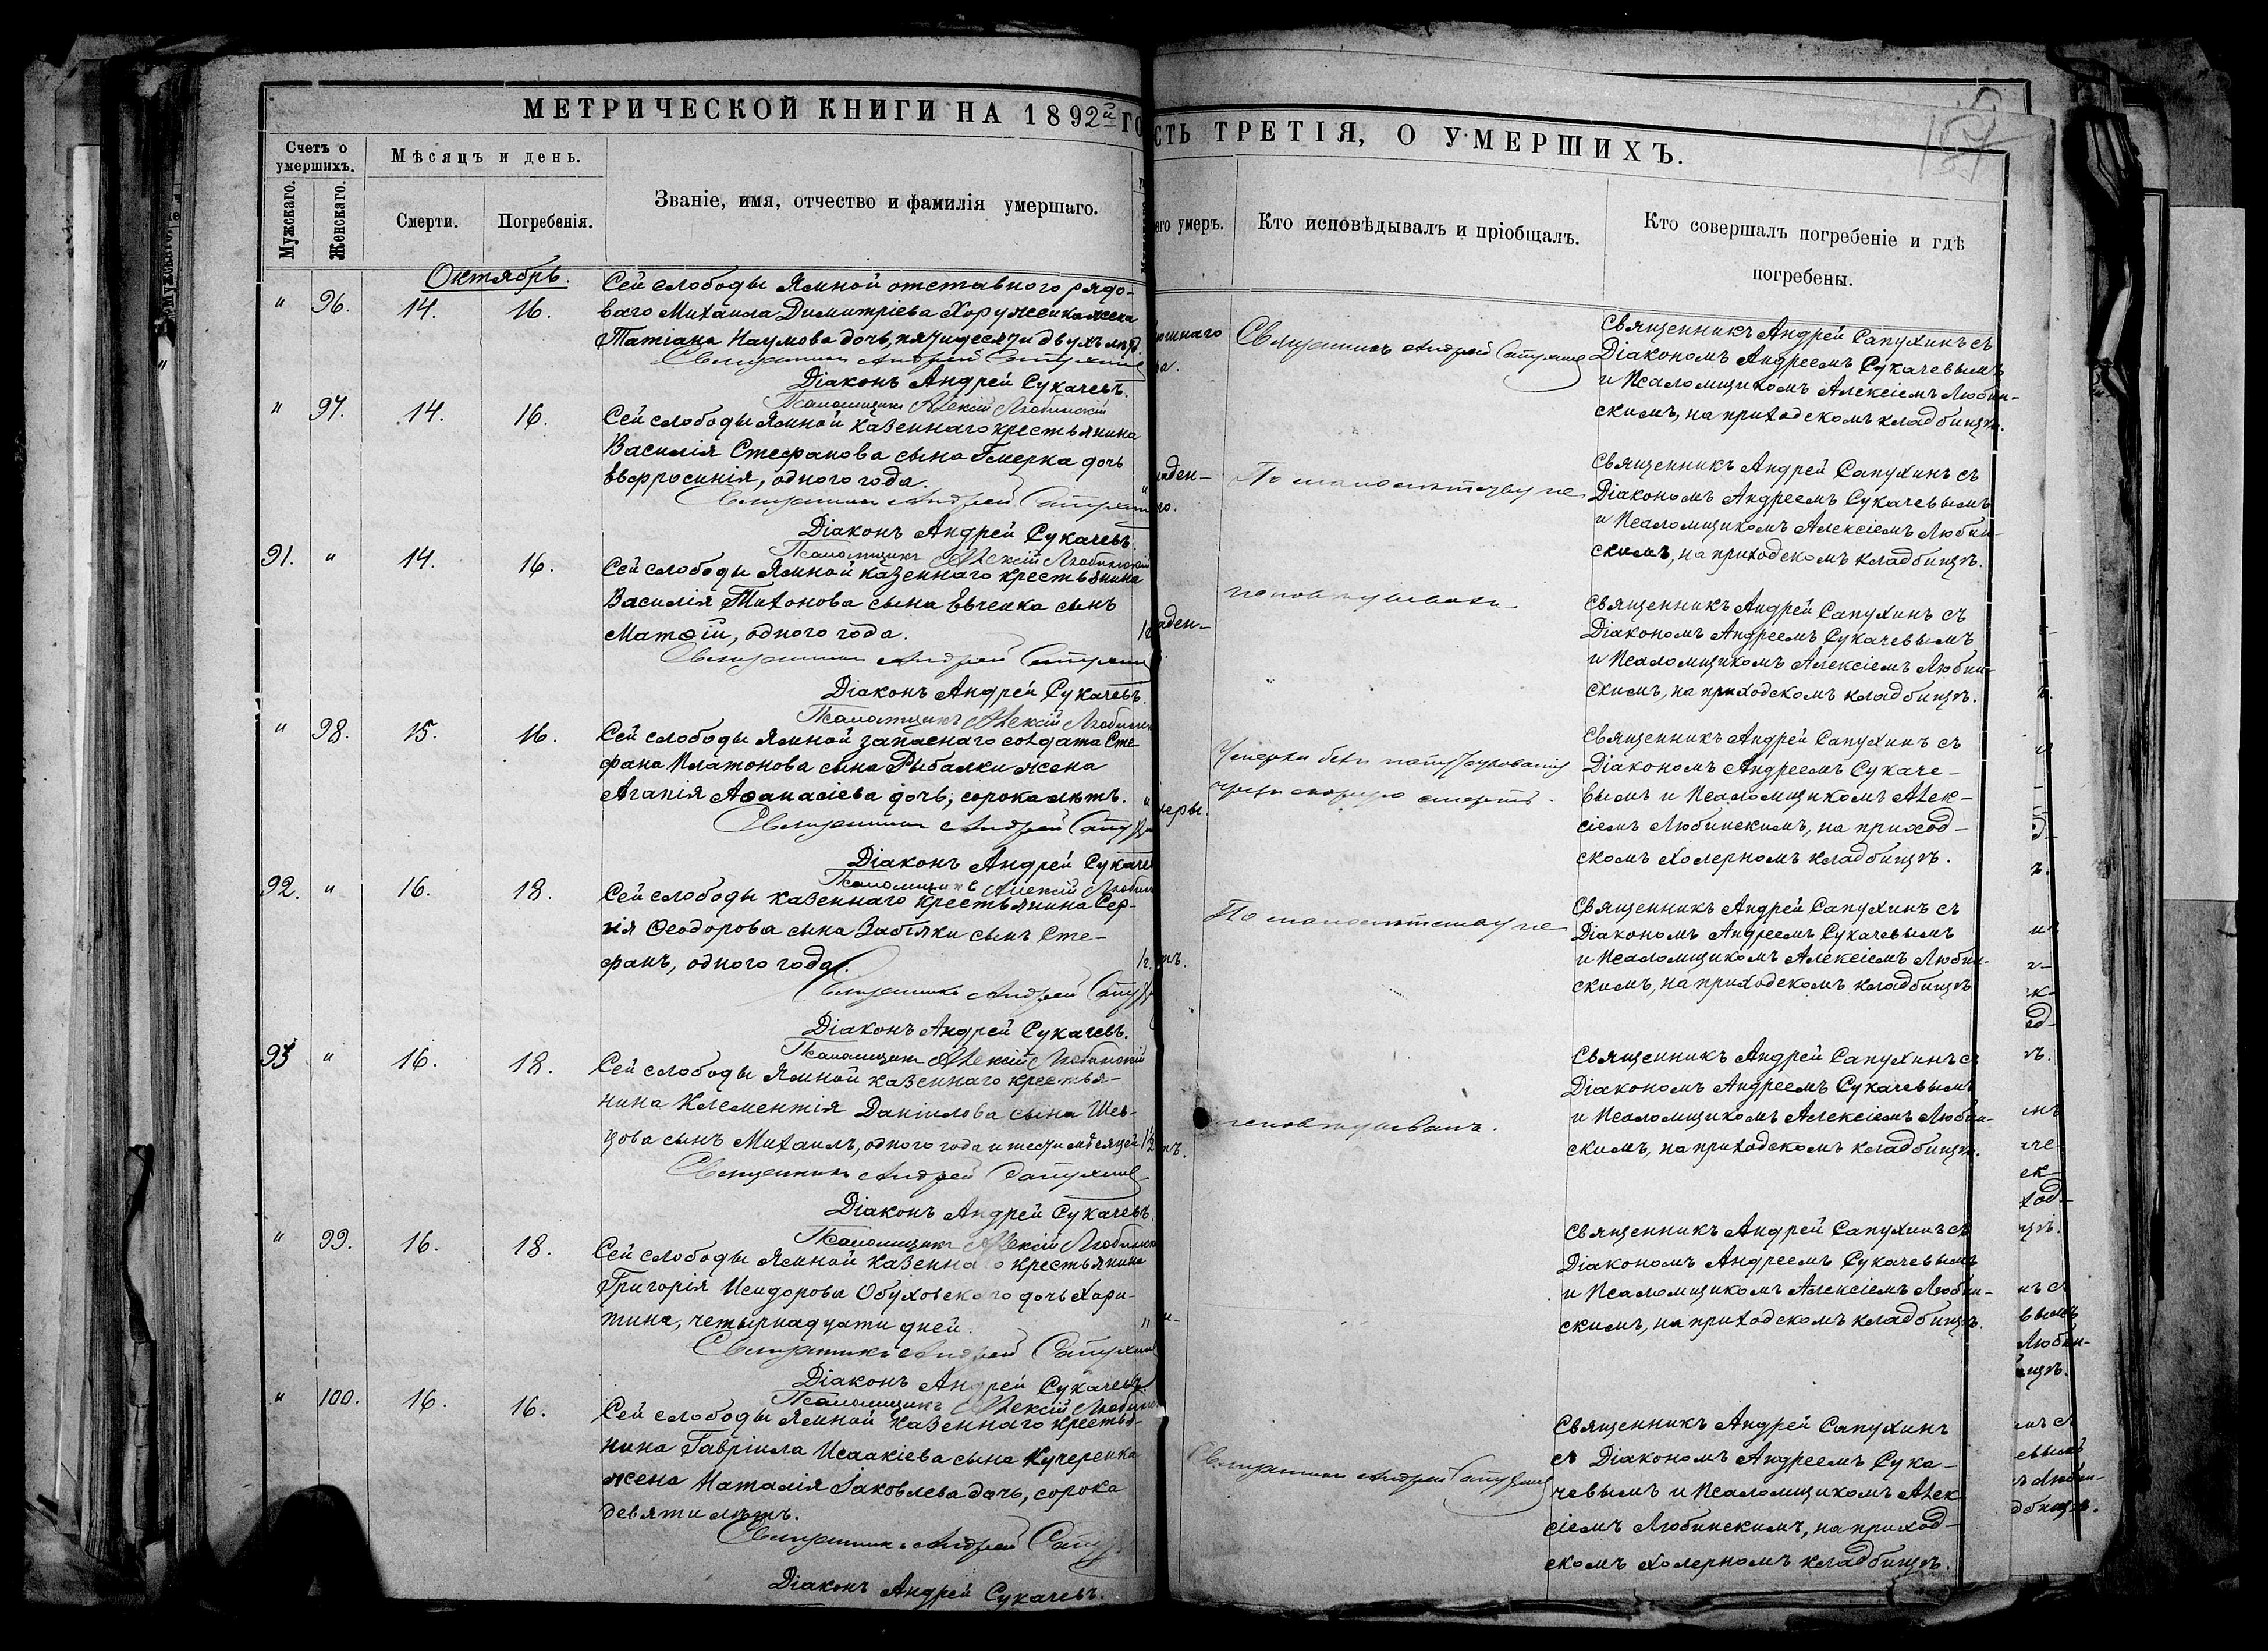 МЕТРИЧЕСКОЙ КНИГИ НА 1892й ГО
Счетъ о умершихъ.
Мужскаго.
Женскаго.
Мѣсяцъ и день.
Смерти.
Погребенія.
Званіе, имя, отчество и фамилія умершаго.
Октябрь.
" 96. 14. 16.
Сей слободы Ямной отставного рядо-
ваго Михаила Димитріева Хоруженка жена
Татіана Наумова дочь, пятидесяти двухъ лѣтъ.
Священникъ Андрей Сапухинъ
Діаконъ Андрей Сукачевъ.
Псаломщикъ Алексій Любинскій
" 97. 14. 16.
Сей слободы Ямной казеннаго крестьянина
Василія Стефанова сына Гмерка дочь
Евфросинія, одного года.
Священникъ Андрей Сапухинъ
Діаконъ Андрей Сукачевъ.
Псаломщикъ Алексій Любинскій
91. " 14. 16.
Сей слободы Ямной казеннаго крестьянина
Василія Тихонова сына Евченка сынъ
Матѳій, одного года.
Священникъ Андрей Сапухинъ
Діаконъ Андрей Сукачевъ.
Псаломщикъ Алексій Любинскій
" 98. 15. 16.
Сей слободы Ямной запаснаго солдата Сте-
фана Платонова сына Рыбалки жена
Агапія Аѳанасіева дочь, сорока лѣтъ.
Священникъ Андрей Сапухинъ
Діаконъ Андрей Сукачев
Псаломщикъ Алексій Любин
92. " 16. 18.
Сей слободы казеннаго крестьянина Сер-
гія Ѳеодорова сына Забіяки сынъ Сте-
фанъ, одного года.
1 г.
Священникъ Андрей Сапух
Діаконъ Андрей Сукачевъ.
Псаломщикъ Алексій Любинскій
93 " 16. 18.
Сей слободы Ямной казеннаго крестья-
нина Клементія Даніилова сына Шев-
цова сынъ Михаилъ, одного года и шести мѣсяцей
1½
Священникъ Андрей Сапухинъ
Діаконъ Андрей Сукачевъ.
Псаломщикъ Алексій Любинск
" 99. 16. 18.
Сей слободы Ямной казеннаго крестьянина
Григорія Исидорова Обуховскаго дочь Хари-
тина, четырнадцати дней.
Священникъ Андрей Сапухинъ
Діаконъ Андрей Сукачевъ.
Псаломщикъ Алексій Любинс
" 100. 16. 16.
Сей слободы Ямной казеннаго крестья-
нина Гавріила Исаакіева сына Кучеренка
жена Наталія Іаковлева дочь, сорока
девяти лѣтъ.
Священникъ Андрей Сапух
Діаконъ Андрей Сукачевъ.
СТЬ ТРЕТІЯ, О УМЕРШИХЪ.
его умеръ.
Кто исповѣдывалъ и пріобщалъ.
Кто совершалъ погребеніе и гдѣ
погребены.
Священникъ Андрей Сапухинъ
Священникъ Андрей Сапухинъ съ
Діакономъ Андреемъ Сукачевымъ
и Псаломщикомъ Алексіемъ Любин-
скимъ, на приходскомъ кладбищѣ.
аден-
По малолѣтству не
Священникъ Андрей Сапухинъ съ
Діакономъ Андреемъ Сукачевымъ
и Псаломщикомъ Алексіемъ Любин-
скимъ, на приходскомъ кладбищѣ.
аден-
исповѣдывали
Священникъ Андрей Сапухинъ съ
Діакономъ Андреемъ Сукачевымъ
и Псаломщикомъ Алексіемъ Любин-
скимъ, на приходскомъ кладбищѣ.
черы.
Умерла безъ напутствованія
чрезъ скорую смерть.
Священникъ Андрей Сапухинъ съ
Діакономъ Андреемъ Сукаче-
вымъ и Псаломщикомъ Алек-
сіемъ Любинскимъ, на приход-
скомъ холерномъ кладбищѣ.
По малолѣтству не
Священникъ Андрей Сапухинъ съ
Діакономъ Андреемъ Сукачевымъ
и Псаломщикомъ Алексіемъ Любин-
скимъ, на приходскомъ кладбищѣ
исповѣдыванъ.
Священникъ Андрей Сапухинъ съ
Діакономъ Андреемъ Сукачевымъ
и Псаломщикомъ Алексіемъ Любин-
скимъ, на приходскомъ кладбищѣ.
Священникъ Андрей Сапухинъ съ
Діакономъ Андреемъ Сукачевымъ
и Псаломщикомъ Алексіемъ Любин-
скимъ, на приходскомъ кладбищѣ.
Священникъ Андрей Сапухинъ
Священникъ Андрей Сапухинъ
съ Діакономъ Андреемъ Сука-
чевымъ и Псаломщикомъ Алек-
сіемъ Любинскимъ, на приход-
скомъ холерномъ кладбищѣ.